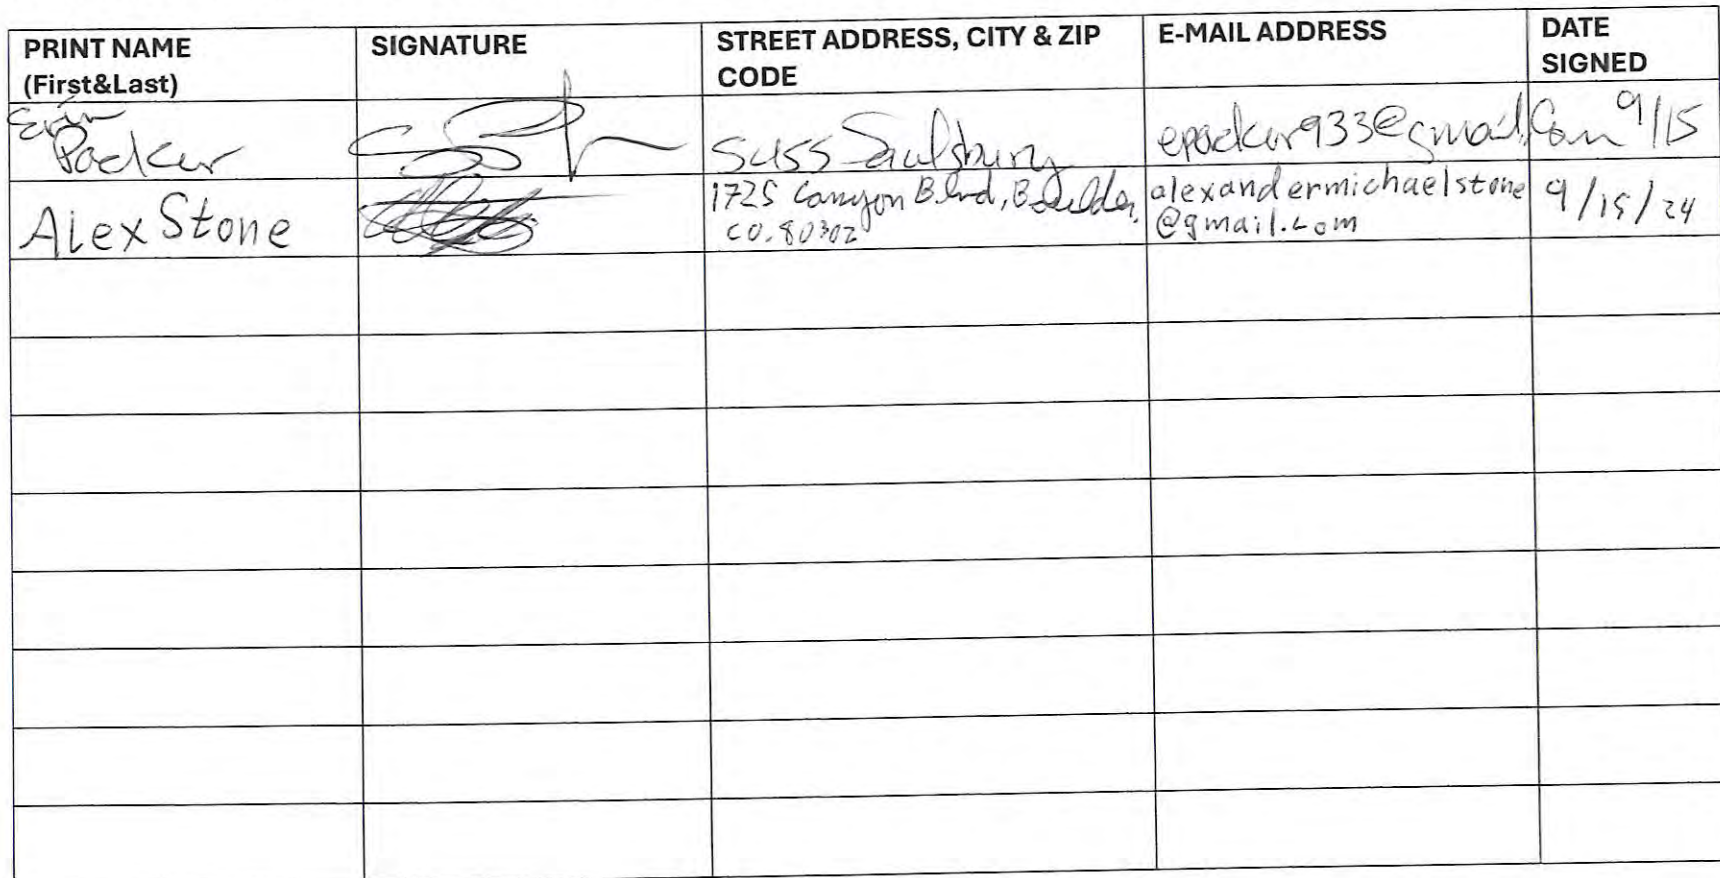 PRINT NAME
(First&Last)
SIGNATURE
STREET ADDRESS, CITY & ZIP
CODE
E-MAIL ADDRESS
DATE
SIGNED
Erin
Packer
Saulsbury
epacker933@gmail.com
9/15
Alex Stone
1725 Canyon Blvd, Boulder,
CO. 80302
alexandermichaelstone
@gmail.com
9/15/24